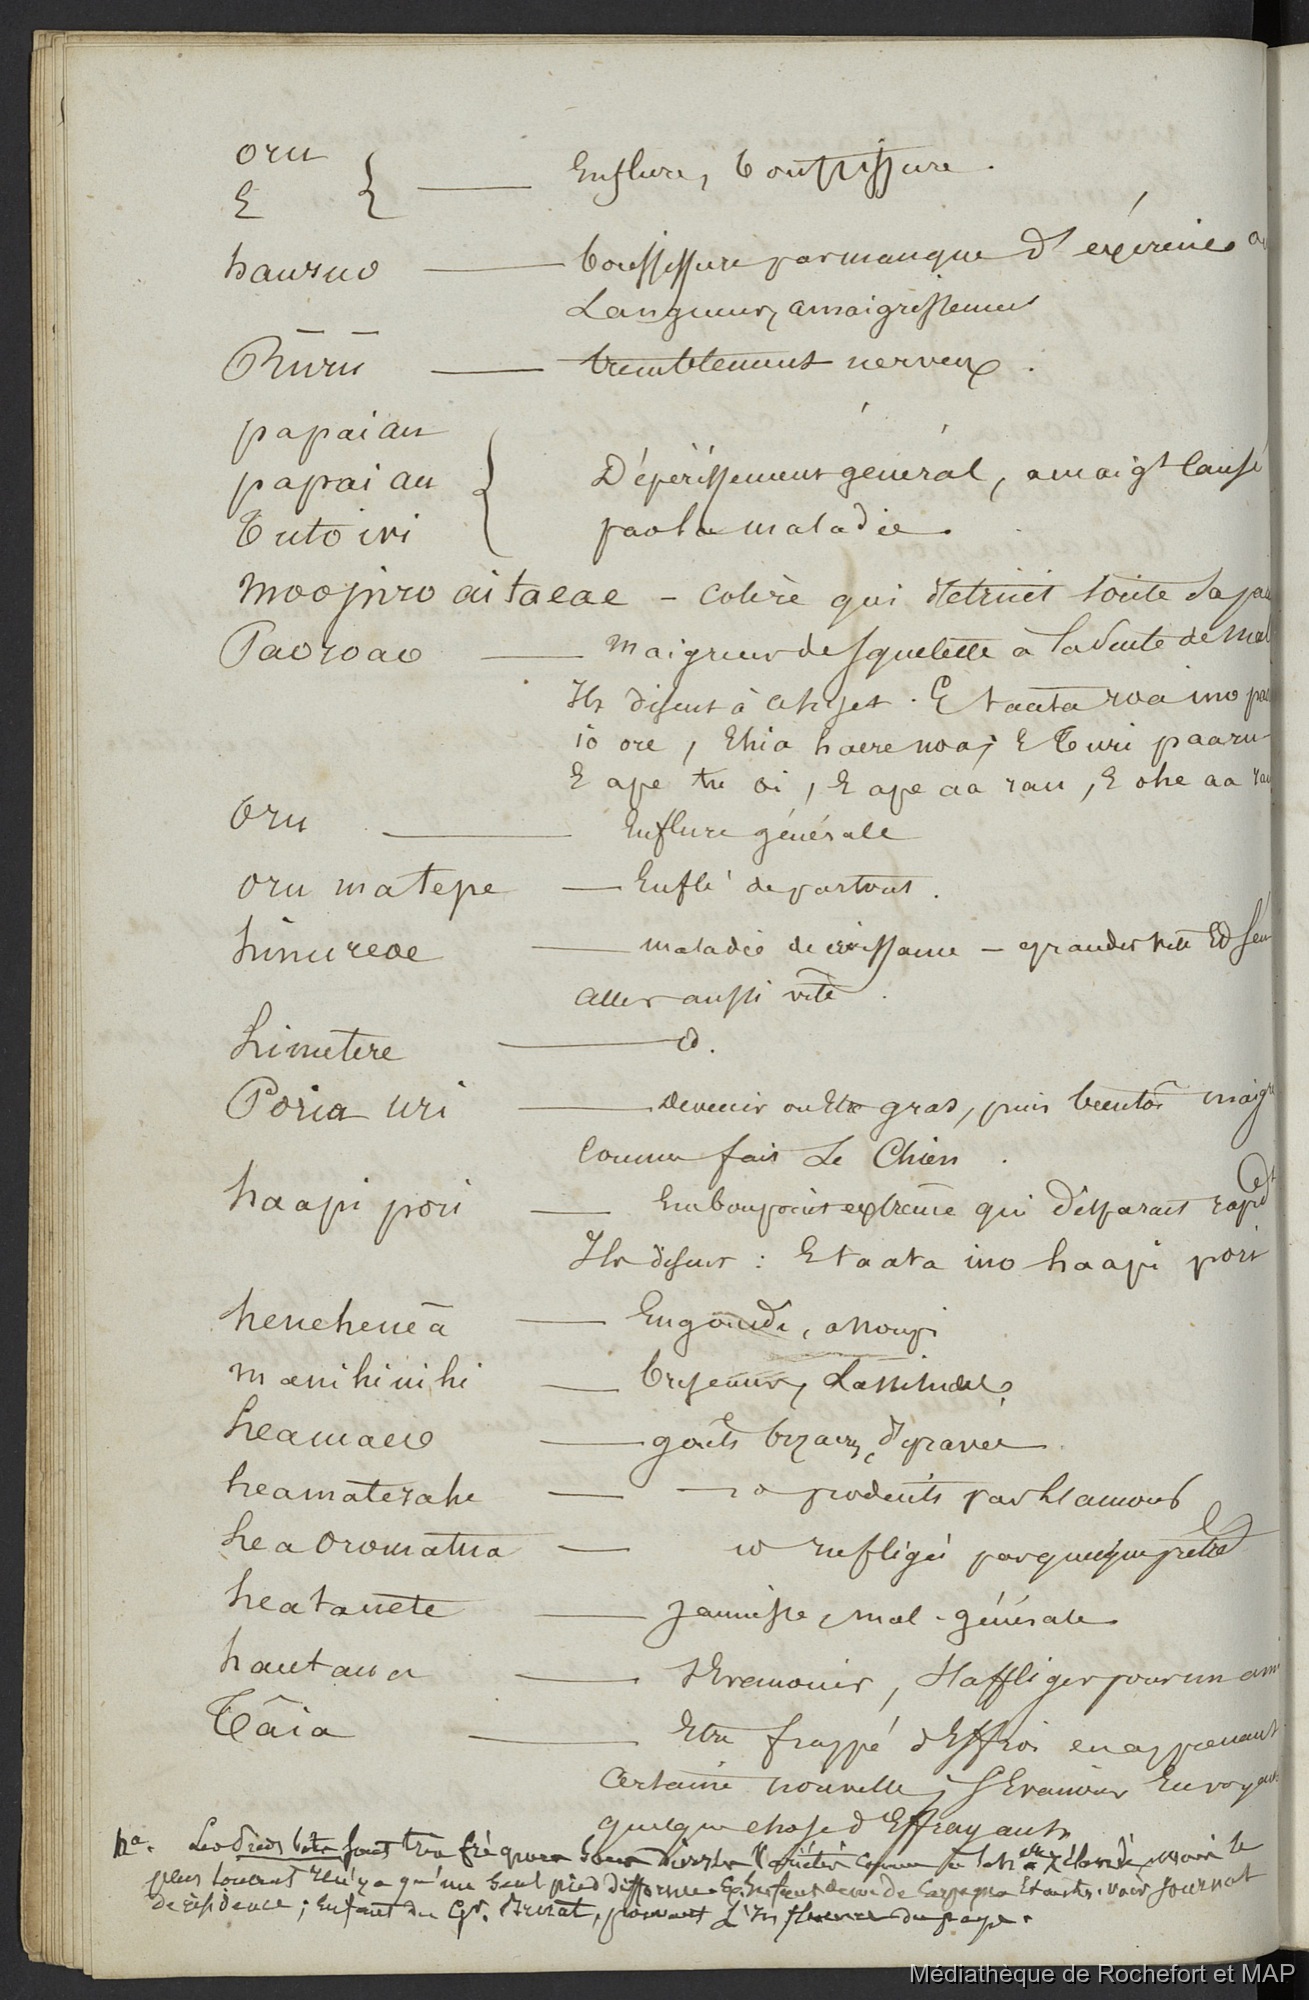 oru
E } — Enflure, bouffissure.
hauruo — bouffissure par manque d'exercice
Langueur, amaigrissement
Rūrū — tremblement nerveux.
papaiau
papai au
Tutoiri } Dépérissement général, amaigt causé
par la maladie.
Moopiro aitaeae – colère qui détruit toute
Paoroao — maigreur de squelette à la suite de mal
Ils disent à ce sujet. E taata roa ino
io ore, Ehia haere noa; E Turi paaru
E ape tu oi, E ape aa rau, E ohe aa rau
Oru — Enflure générale
oru matepe — Enflé de partout.
hinureae — maladie de croissance – grandir vite Et s'en
aller aussi vite.
hinutere — d.
Poria uri — devenir ou Etre gras, puis bientôt maigre
comme fait Le Chien.
haapi pori — Embonpoint extrême qui disparait rapidt
Ils disent : E taata ino haapi pori
heneheneā — Engourdi, assoupi
manihinihi — briseur, Lassitudes
heamaeo — goûts bizarres, dépravés
heamaterahe — do produits par
heaoromatua — do infligés par quelque
heatanete — Jaunisse, mal général
hautaua — s'Evanouir, s'affliger pour un ami
Tâia — Etre frappé d'Effroi en apprenant
certaine nouvelle, s'Evanouir En voyant
quelque chose d'Effrayant
na. Les pieds bots sont très fréquens
plus souvent il n'y a qu'un seul pied difforme. voir journal
de résidence; Enfant du Gr. Bruat, prouvant L'Influence du pays.